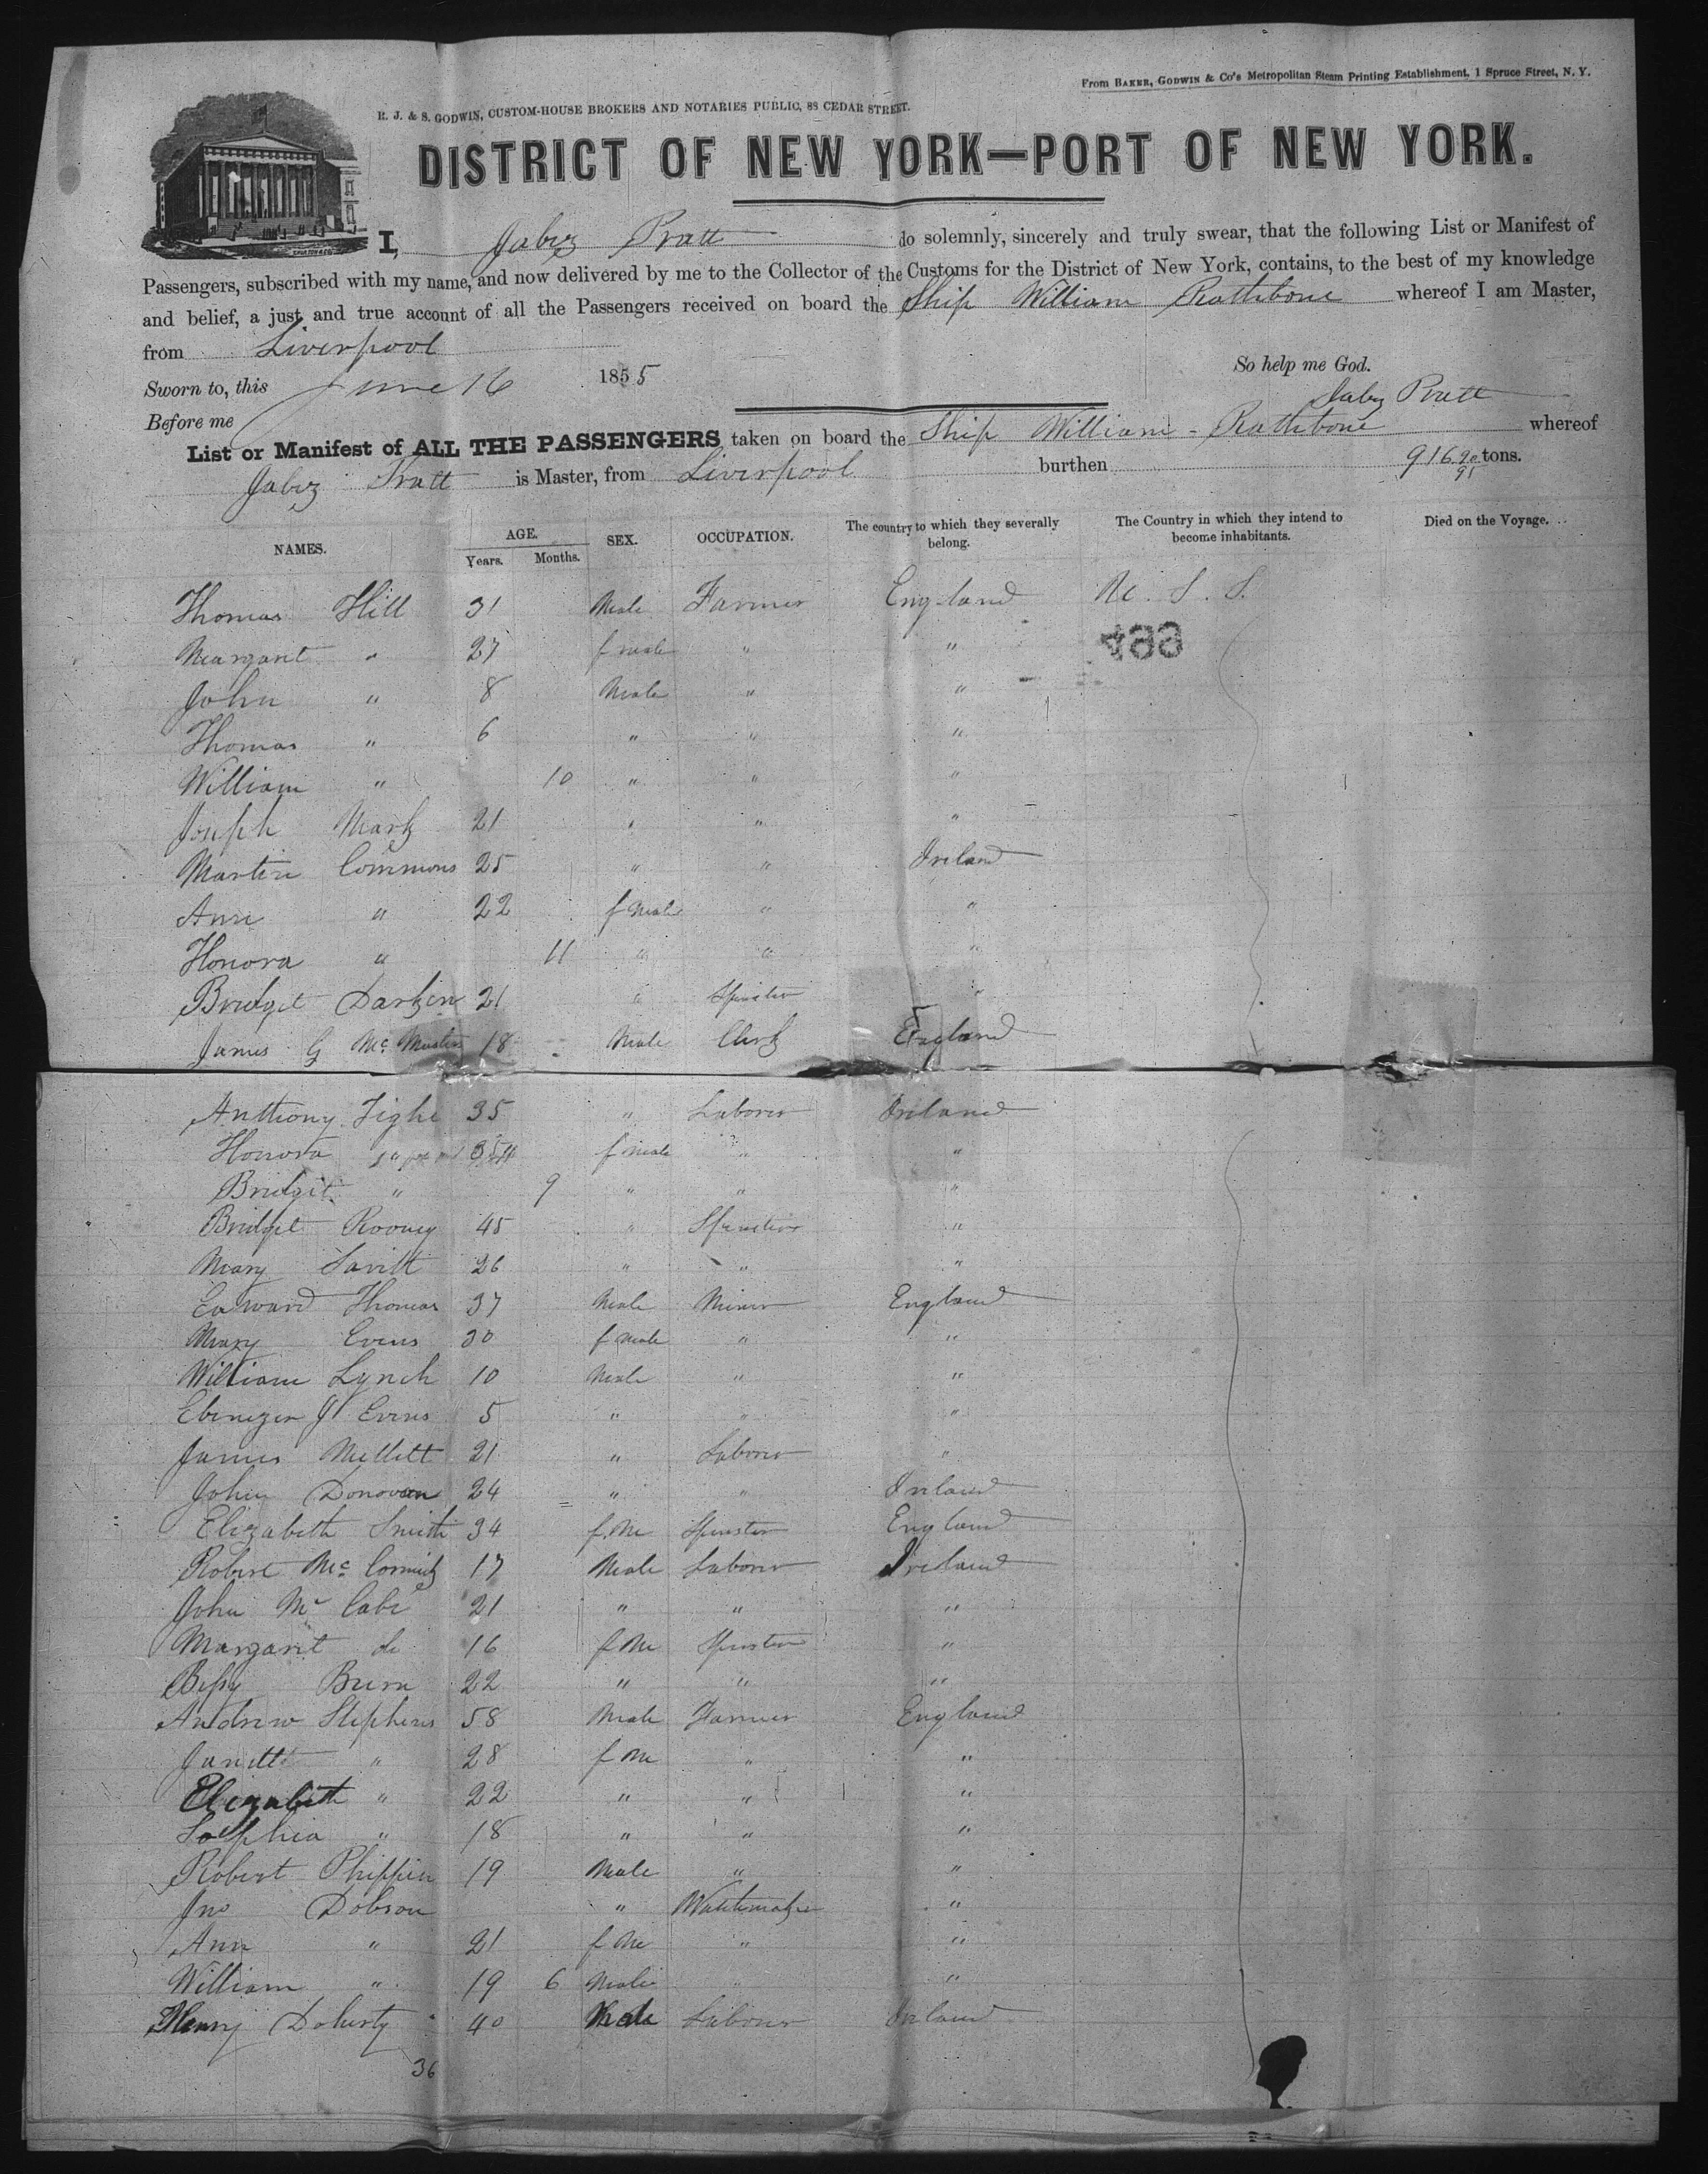 From BAKER, GODWIN & Co's Metropolitan Steam Printing Establishment, 1 Spruce Street, N. Y.
R. J. & S. GODWIN, CUSTOM-HOUSE BROKERS AND NOTARIES PUBLIC, 88 CEDAR STREET.
DISTRICT OF NEW YORK—PORT OF NEW YORK.
I, Jabez Pratt do solemnly, sincerely and truly swear, that the following List or Manifest of
Passengers, subscribed with my name, and now delivered by me to the Collector of the Customs for the District of New York, contains, to the best of my knowledge
and belief, a just and true account of all the Passengers received on board the Ship William Rathbone whereof I am Master,
from Liverpool
So help me God.
Sworn to, this June 16 1855
Jabez Pratt
Before me
List or Manifest of ALL THE PASSENGERS taken on board the Ship William - Rathbone whereof
Jabez Pratt is Master, from Liverpool burthen 916 90/95 tons.
NAMES. AGE. Years. Months. SEX. OCCUPATION. The country to which they severally belong. The Country in which they intend to become inhabitants. Died on the Voyage.
Thomas Hill 31 Male Farmer England U. S. S.
Margaret " 27 f male " "
John " 8 Male " "
Thomas " 6 " " "
William " 10 " " "
Joseph Mark 21 " " "
Martin Commons 25 " " Ireland
Ann " 22 f Male " "
Honora " 11 " " "
Bridget Darken 21 " Spinster "
James G Mc Master 18 Male Clerk England
Anthony Tighe 35 " Laborer Ireland
Honora " f male " "
Bridgit " 9 " " "
Bridget Rooney 45 " Spinster "
Mary Savitt 26 " " "
Edward Thomas 37 Male Miner England
Mary Evens 30 f male " "
William Lynch 10 Male " "
Ebenezer J Evens 5 " " "
James Mellett 21 " Laborer "
John Donovan 24 " " Ireland
Elizabeth Smith 34 f. M Spinster England
Robert Mc Cormick 17 Male Laborer Ireland
John Mc Cabe 21 " " "
Margaret do 16 f M Spinster "
Bessy Burn 22 " " "
Andrew Stephens 58 Male Farmer England
Janett " 28 f M " "
Elizabeth " 22 " " "
Sophia " 18 " " "
Robert Phippen 19 Male " "
Jno Dobson " Watchmaker "
Ann " 21 f M " "
William " 19 6 Male " "
Henry Doherty 40 Male Laborer Ireland
36